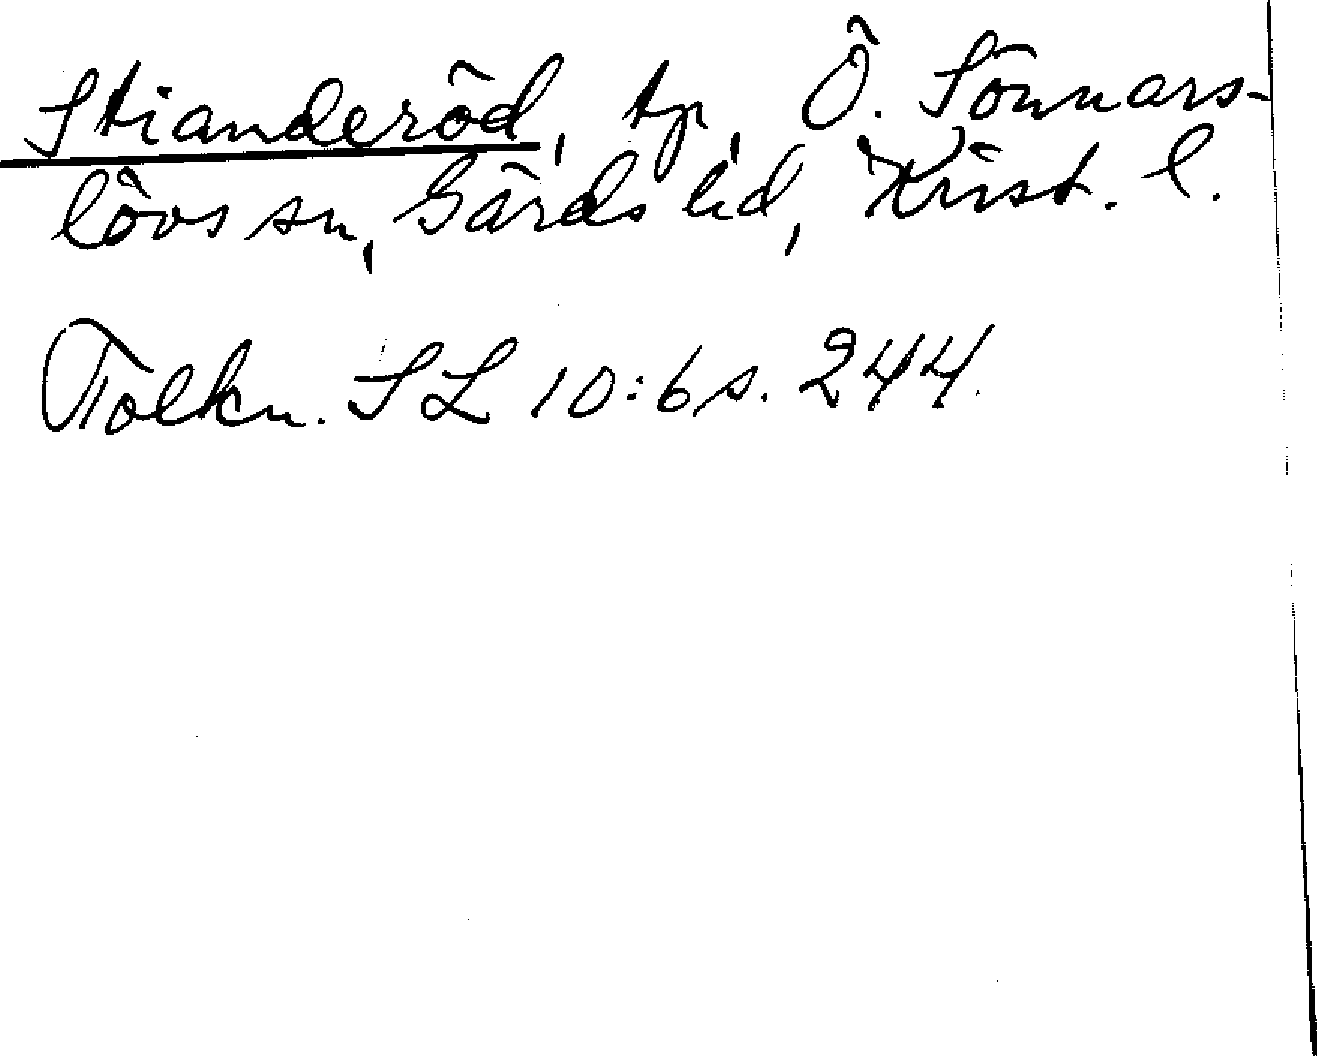 Stianderöd, tp, Ö. Sönnars-
lövs sn, Gärds hd, Krist. l.
Tolkn. SL 10:6 s. 244.